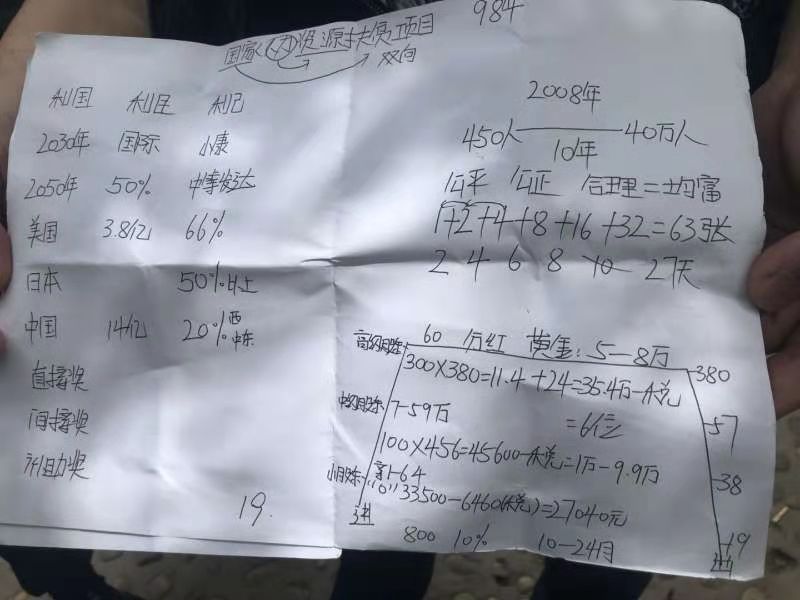 984
国家(人力)资源扶贫项目
双向
利国 利民 利己
2030年 国际 小康
2050年 50% 中等发达
美国 3.8亿 66%
日本 50%以上
中国 14亿 20% 西 中东
直接奖
间接奖
补助奖
19.
2008年
450人 40万人
10年
公平 公正 合理=均富
1+2+4+8+16+32=63张
2 4 6 8 10 27天
高级股东 60 分红 黄金:5-8万
300×380=11.4+24=35.4万-税 380
=6位
中级股东 7-59万 57
100×456=45600-税=1万-9.9万
小股东 1-64 38
"0"33500-6460(税)=27040元
进 19
800 10% 10-24月 出